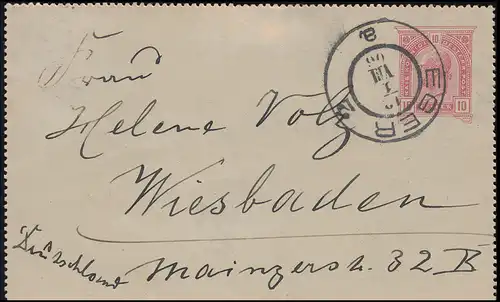 Frau
Helene Volz
Wiesbaden
Deutschland Mainzerstr. 32 B
EGER
10
10 10